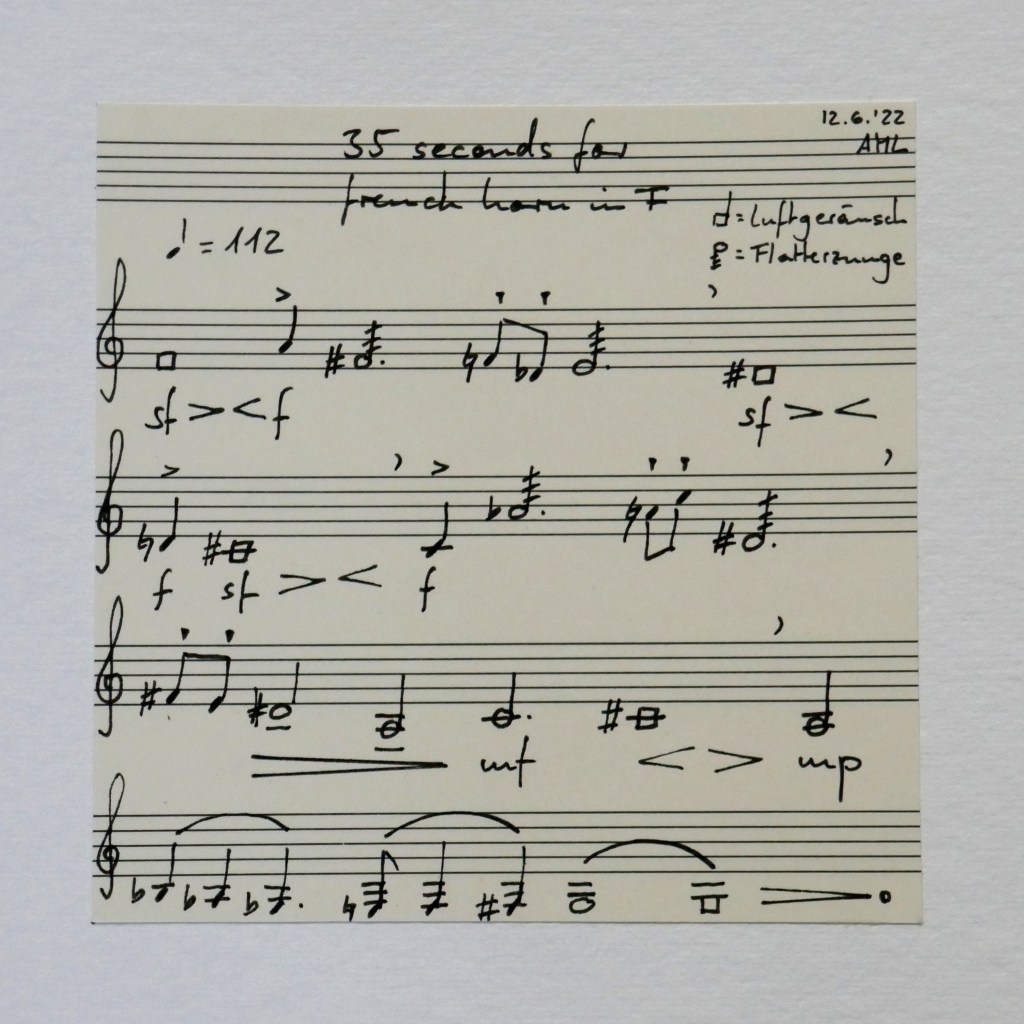 12.6.'22
35 seconds for
AML
french horn in F
= Luftgeräusch
= 112
= Flatterzunge
sf > < f
sf > <
f sf > < f
mf < > mp